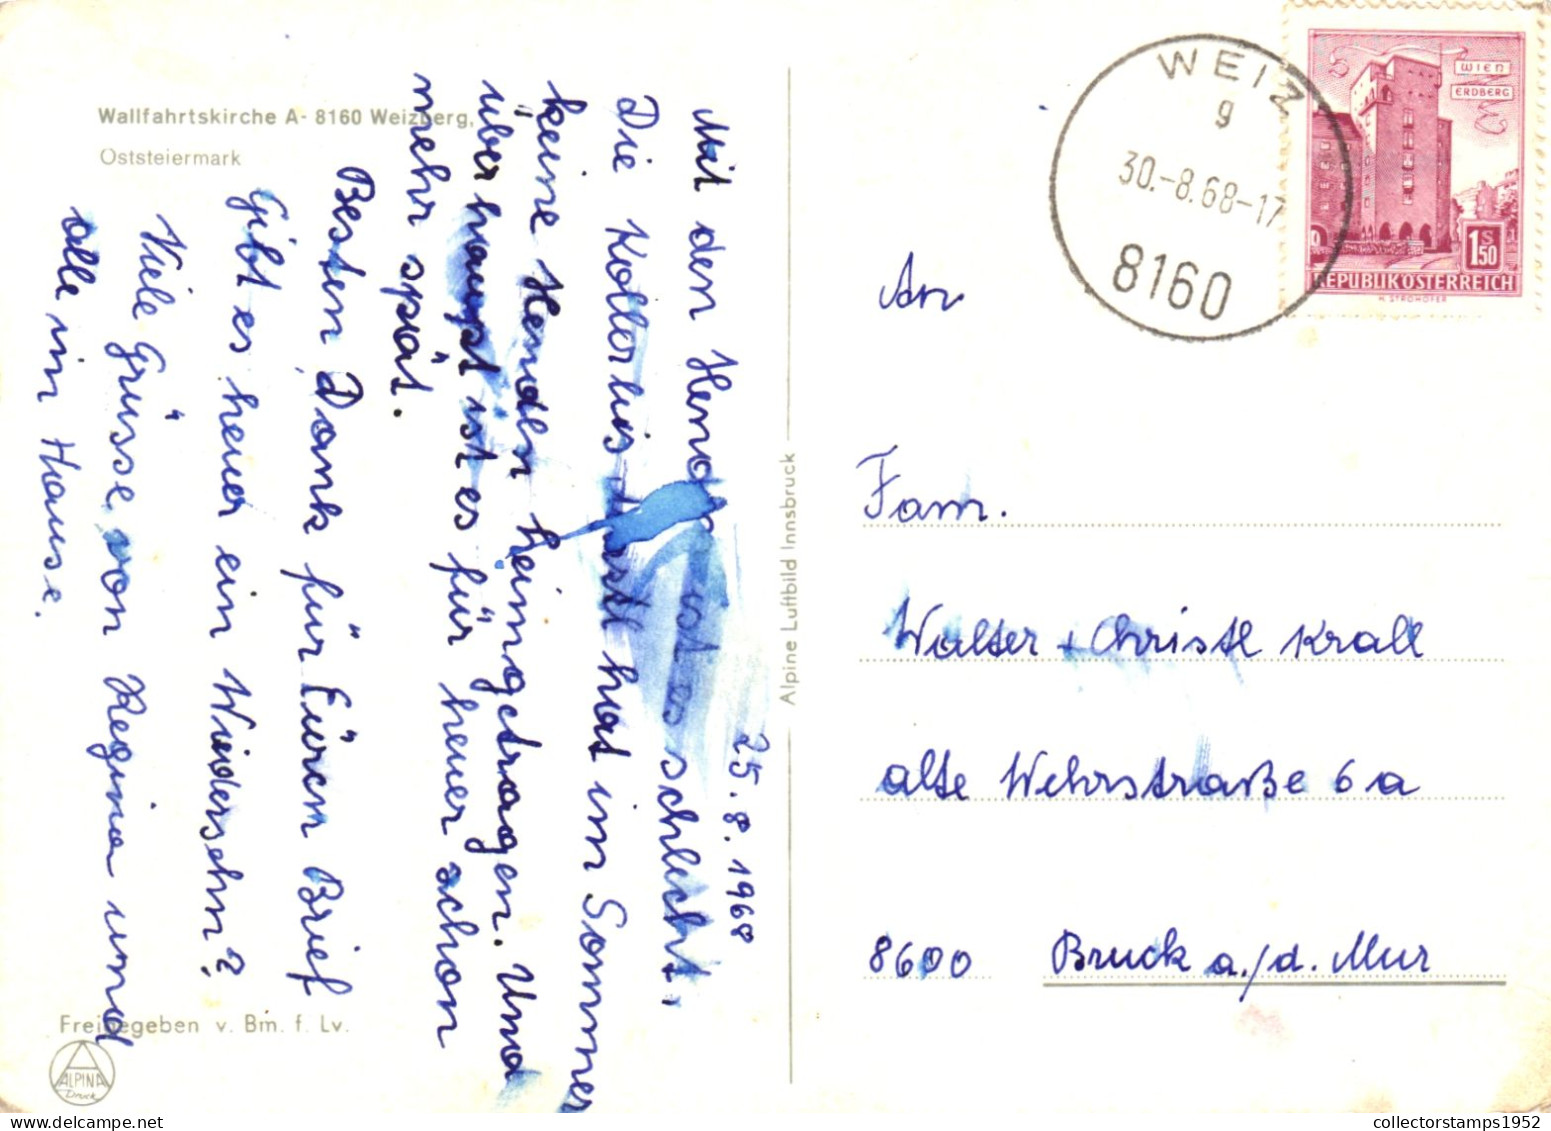 Wallfahrtskirche A- 8160 Weizberg,
Oststeiermark
25.8.1968
Mit den Henden ist es schlecht,
Die Koller hat im Sommer
keine Henden heimgetragen. Und
überhaupt ist es für heuer schon
mehr spät.
Besten Dank für Euren Brief
Gibt es heuer ein Wiedersehn?
Viele Grüsse von Regina und
alle im Hause.
Freigegeben v. Bm. f. Lv.
ALPINA
Druck
Alpine Luftbild Innsbruck
WEIZ
g
30.-8.68-17
8160
WIEN
ERDBERG
1 S 50
REPUBLIK ÖSTERREICH
H. STROHOFER
An
Fam.
Walter + Christl Krall
alte Wehrstraße 6a
8600 Bruck a./d. Mur
collectorstamps1952